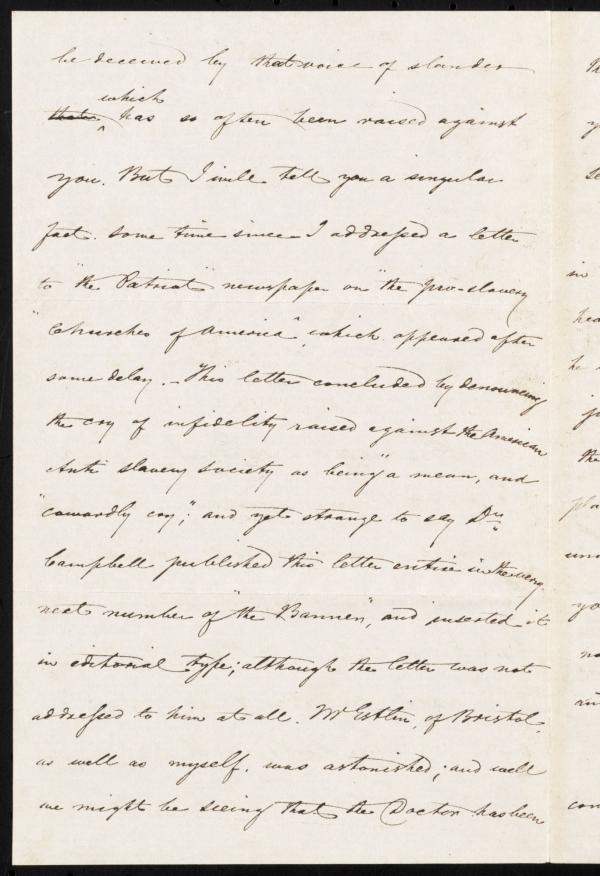 be deceived by that voice of slander
which
that has so often been raised against
you. But I will tell you a singular
fact. some time since I addressed a letter
to "the Patriot" newspaper on "the pro-slavery
"Churches of America", which appeared after
some delay. - This letter concluded by denouncing
the cry of infidelity raised against the American
Anti slavery society as being "a mean, and
"cowardly cry"; and yet strange to say Dr.
Campbell published this letter entire in the very
next number of "the Banner", and inserted it
in editorial type; although the letter was not
addressed to him at all. Mr Estlin, of Bristol,
as well as myself. was astonished; and well
we might be seeing that the Doctor has been